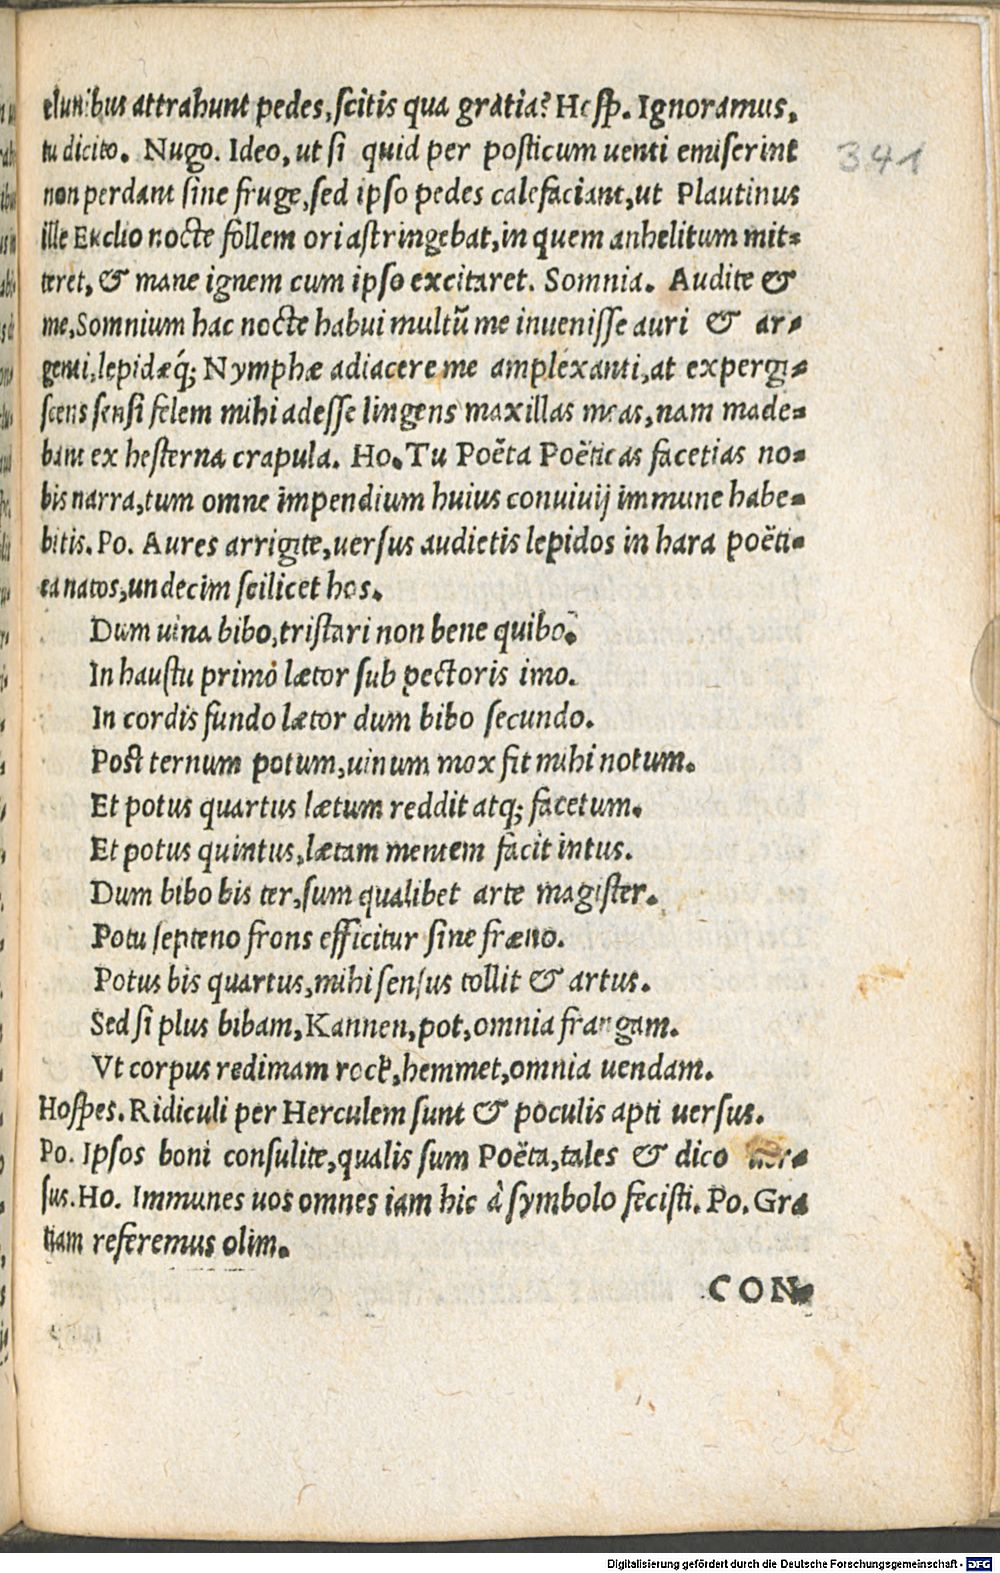 clunibus attrahunt pedes, scitis qua gratia? Hosp. Ignoramus,
tu dicito. Nugo. Ideo, ut si quid per posticum uenti emiserint
non perdant sine fruge, sed ipso pedes calefaciant, ut Plautinus
ille Euclio nocte follem ori astringebat, in quem anhelitum mit-
teret, & mane ignem cum ipso excitaret. Somnia. Audite &
me, Somnium hac nocte habui multũ me inuenisse auri & ar-
genti, lepidæq́; Nymphæ adiacere me amplexanti, at expergi-
scens sensi felem mihi adesse lingens maxillas meas, nam made-
bant ex hesterna crapula. Ho. Tu Poëta Poëticas facetias no-
bis narra, tum omne impendium huius conuiuij immune habe-
bitis. Po. Aures arrigite, uersus audietis lepidos in hara poëti-
ca natos, undecim scilicet hos.
Dum uina bibo, tristari non bene quibo.
In haustu primo lætor sub pectoris imo.
In cordis fundo lætor dum bibo secundo.
Post ternum potum, uinum mox fit mihi notum.
Et potus quartus lætum reddit atq; facetum.
Et potus quintus, lætam mentem facit intus.
Dum bibo bis ter, sum qualibet arte magister.
Potu septeno frons efficitur sine fræno.
Potus bis quartus, mihi sensus tollit & artus.
Sed si plus bibam, Kannen, pot, omnia frangam.
Vt corpus redimam rock, hemmet, omnia uendam.
Hospes. Ridiculi per Herculem sunt & poculis apti uersus.
Po. Ipsos boni consulite, qualis sum Poëta, tales & dico uer-
sus. Ho. Immunes uos omnes iam hic à symbolo fecisti. Po. Gra
tiam referemus olim.
CON-
341
Digitalisierung gefördert durch die Deutsche Forschungsgemeinschaft - DFG